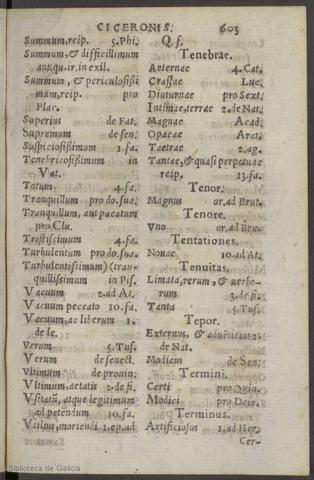 CICERONIS. 605
Summum, reip. 5. Phi.
Summum, & difficillimum
antiqu. ir. in exil.
Summum, & periculosißi
mum, reip. pro
Flac.
Superius de Fat.
Supremum de sen.
Suspiciosißimum 1. fa.
Tenebricosißimum in
Vat.
Totum 4. fa.
Tranquillum pro do. sua.
Tranquillum, aut pacatum
pro Clu.
Tristissimum 4. fa.
Turbulentum pro do. sua.
Turbulentissimum) (tran-
quillissimum in Pis.
Vacuum 2. ad At.
Vacuum peccato 10. fa.
Vacuum, ac liberum 1.
de le.
Verum 5. Tus.
Verum de senect.
Vltimum de prouin.
Vltimum, aetatis 2. de fi.
Vsitatũ, atque legitimum
ad petendum 10. fa.
Vitius, moriendi 1. ep. ad
Q. f.
Tenebrae.
Aeternae 4. Cat.
Crassae Luc.
Diuturnae pro Sext.
Intimae, terrae 2. de Nat.
Magnae Acad.
Opacae Arat.
Taetrae 2. ag.
Tantae, & quasi perpetuae
reip. 13. fa.
Tenor.
Magnus or. ad Brut.
Tenore.
Vno or. ad Bru.
Tentationes.
Nouae 10. ad At.
Tenuitas.
Limata, rerum, & uerbo-
rum 3. de fi.
Tanta 5. Tus.
Tepor.
Externus, & aduẽticius 2.
de Nat.
Modicus de Sen.
Termini.
Certi pro Quin.
Modici pro Deio.
Terminus.
Artificiosus 1. ad Her.
Cer-
Biblioteca de Galicia